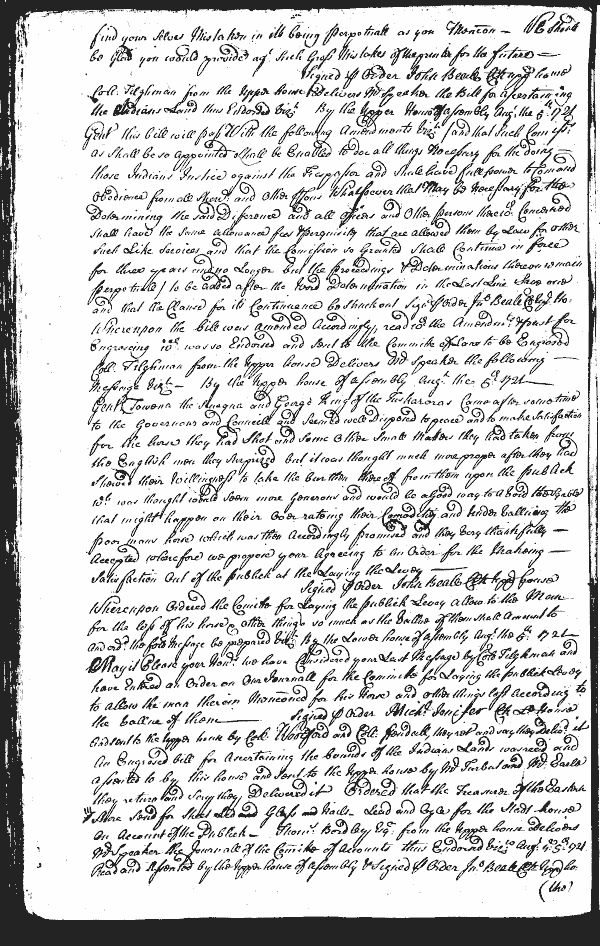 find your Selves Mistaken in its being Perpetuall as you Mencon — We should
be glad you would provide agt. Such Gross Mistakes of the printer for the future —
Signed P Order John Beale Cl upp house
Coll. Tilghman from the Upper House Delivers Mr Speaker the Bill for ascertaining
the Indians Land thus Endorsed Vizt. By the Upper House of Assembly Augt. the 5th. 1721
Gent this bill will pass With the following Amendments Vizt. (and that Such Comissrs.
as Shall be so Appointed Shall be Enabled to doe all things Necessary for the doing
those Indians Justice against the Trespassor and Shall have full power to Comand
Obedience from all Sherrs. and Other psons Whatsoever that May be Necessary for the
Determining the said Difference and all officers and Other persons therein Concerned
shall have the Same Allowance fees & perquisits that are allowed them by Law for other
Such Like Services and that the Comission so Granted Shall Continue in force
for three years and no Longer but the proceedings & Determinations thereon remain
perpetuall) to be added after the Word determination in the Last Line Save one
and that the Clause for its Continuance be struck out Sign'd P Order Jno. Beale Cl upp. ho.
Whereupon the bill was amended Accordingly, read wth. the Amendmts. & past for
Engrossing wch. was so Endorsed and Sent to the Committe of Laws to be Engrossed
Coll. Tilghman from the Upper house Delivers Mr. Speaker the following —
Message Vizt. — By the Upper house of Assembly Augt. the 5th. 1721
Gentl. Towena the and George King of the Tuskaroras Came after some time
to the Governour and Councill and Seemed well Disposed to peace and to make Satisfaction
for the horse they had Shot and Some Other Small Matters they had taken from
the English men they Surprized but it was thought much more proper after they had
Shewed their Willingness to take the burthen thereof from them upon the publick
wch. was thought would seem more Generous and would be a good way to Avoid the
that might happen on their Over rating their Comodity and under valluing the
poor mans horse which was then Accordingly promised and they Very thankfully —
Accepted wherefore we propose your Agreeing to An Order for the Making —
Satisfaction Out of the publick at the Laying the Levey —
Signed P Order John Beale Cl upp house
Whereupon Ordered the Comitte for Laying the publick Levey allow to the Man
for the loss of his horse & other things so much as the Vallue of them shall Amount to
And ordd. the follg Message be prepared Vizt. By the Lower house of Assembly Augt. the 5th. 1721
May it Please your Honrs. we have Considered your Last Message by Coll Tilghman and
have Entred an Order on Our Journall for the Comitte for Laying the publick Levey
to allow the man therein Mencioned for his Horse and other things lost According to
the vallue of them — Signed P Order Michl. Jenifer Cl Lo House
And sent to the Upper house by Coll. Woodford and Coll. Fendall, they ret and say they Deliv'd it
An Engrossed bill for Ascertaining the bounds of the Indians Lands was read and
assented to by this house and Sent to the Upper house by Mr Turbutt and Mr. Earle
they return and Say they Delivered it Ordered that the Treasurer of the Eastern
Shore Send for Sheet Lead and Glass and Nails — Lead and Oyle for the Stadt house
On Account of the Publick — Thoms. Bordley Esqr. from the Upper house Delivers
Mr Speaker the Journall of the Comitte of Accounts thus Endorsed Vizt. Augt. 5th. 1721
Read and Assented by the Upper House of Assembly & Signed P Order Jno. Beale Cl upp ho
(the)